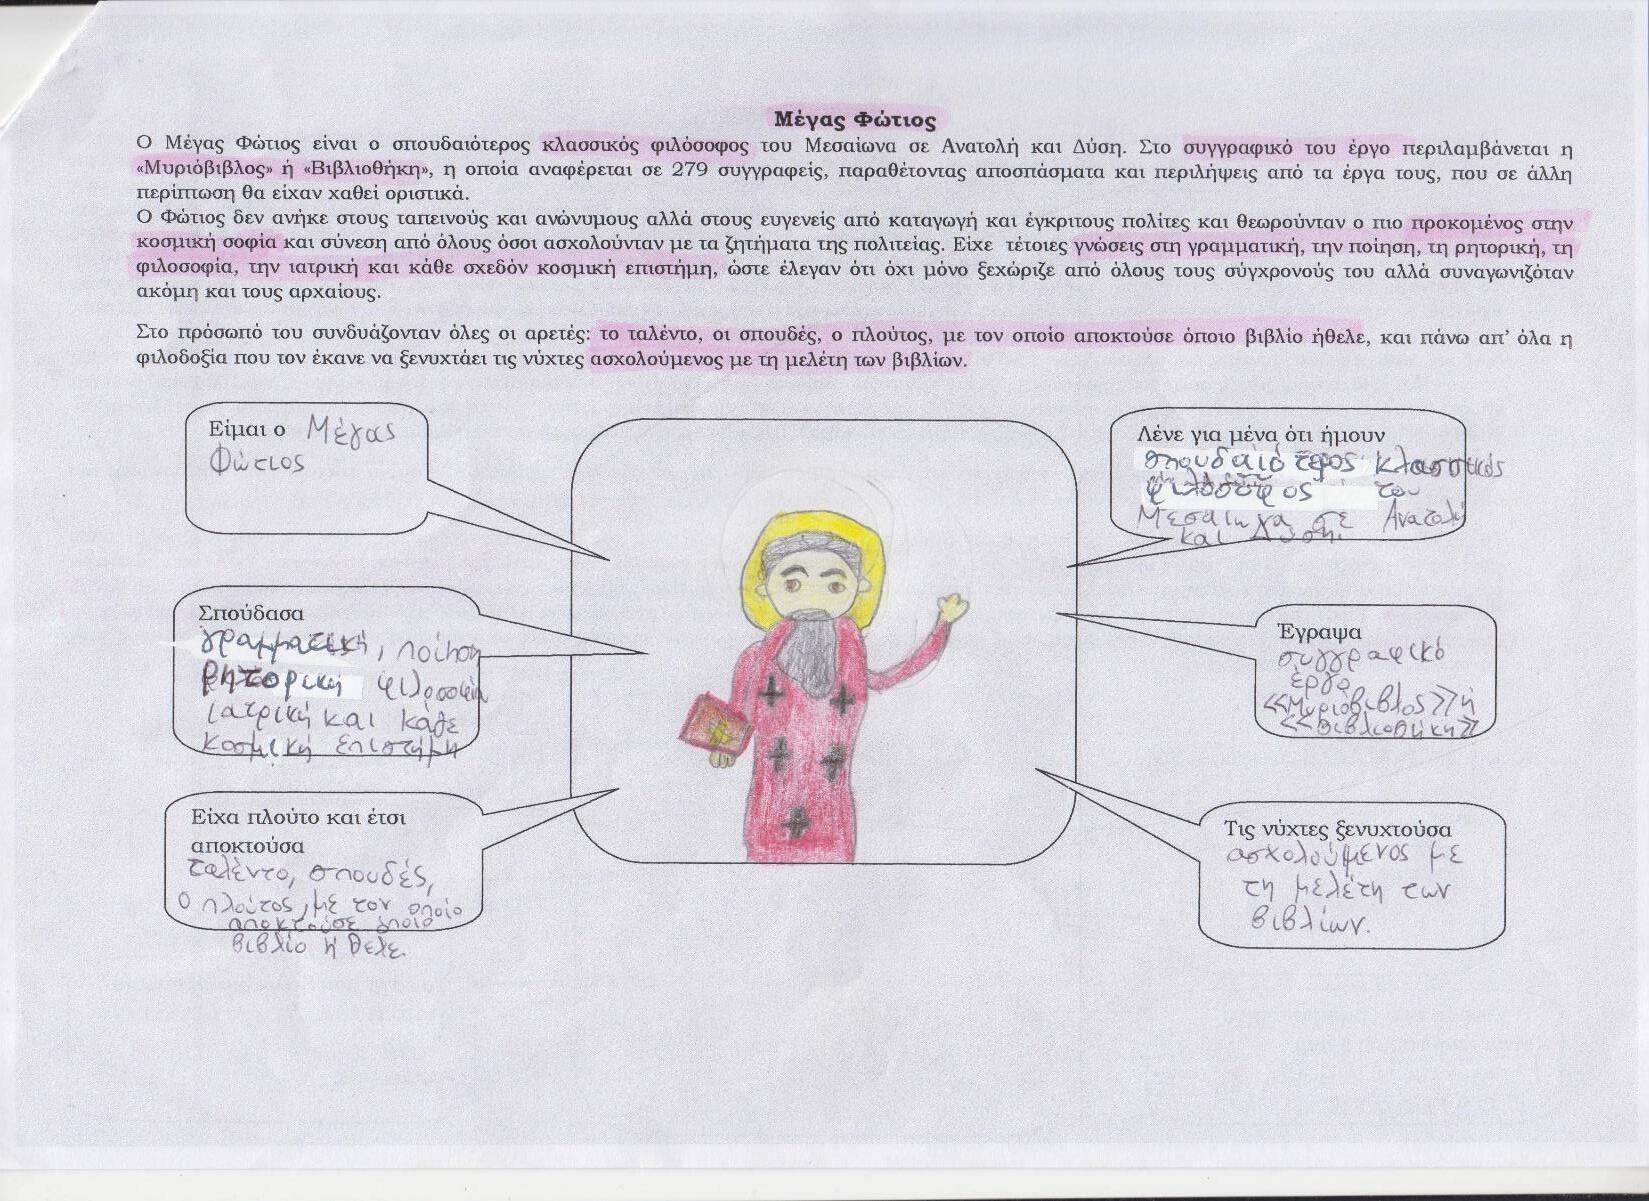 Μέγας Φώτιος
Ο Μέγας Φώτιος είναι ο σπουδαιότερος κλασσικός φιλόσοφος του Μεσαίωνα σε Ανατολή και Δύση. Στο συγγραφικό του έργο περιλαμβάνεται η
«Μυριόβιβλος» ή «Βιβλιοθήκη», η οποία αναφέρεται σε 279 συγγραφείς, παραθέτοντας αποσπάσματα και περιλήψεις από τα έργα τους, που σε άλλη
περίπτωση θα είχαν χαθεί οριστικά.
Ο Φώτιος δεν ανήκε στους ταπεινούς και ανώνυμους αλλά στους ευγενείς από καταγωγή και έγκριτους πολίτες και θεωρούνταν ο πιο προκομένος στην
κοσμική σοφία και σύνεση από όλους όσοι ασχολούνταν με τα ζητήματα της πολιτείας. Είχε τέτοιες γνώσεις στη γραμματική, την ποίηση, τη ρητορική, τη
φιλοσοφία, την ιατρική και κάθε σχεδόν κοσμική επιστήμη, ώστε έλεγαν ότι όχι μόνο ξεχώριζε από όλους τους σύγχρονούς του αλλά συναγωνιζόταν
ακόμη και τους αρχαίους.
Στο πρόσωπό του συνδυάζονταν όλες οι αρετές: το ταλέντο, οι σπουδές, ο πλούτος, με τον οποίο αποκτούσε όποιο βιβλίο ήθελε, και πάνω απ' όλα η
φιλοδοξία που τον έκανε να ξενυχτάει τις νύχτες ασχολούμενος με τη μελέτη των βιβλίων.
Είμαι ο Μέγας
Φώτιος
Σπούδασα
γραμματική, ποίηση
ρητορική φιλοσοφία
ιατρική και κάθε
κοσμική επιστήμη
Είχα πλούτο και έτσι
αποκτούσα
ταλέντο, σπουδές,
ο πλούτος, με τον οποίο
αποκτούσε όποιο
βιβλίο ήθελε.
Λένε για μένα ότι ήμουν
σπουδαιότερος κλασσικός
φιλόσοφος του
Μεσαίωνα σε Ανατολή
και Δύση.
Έγραψα
συγγραφικό
έργο
«Μυριόβιβλος» ή
«Βιβλιοθήκη»
Τις νύχτες ξενυχτούσα
ασχολούμενος με
τη μελέτη των
βιβλίων.